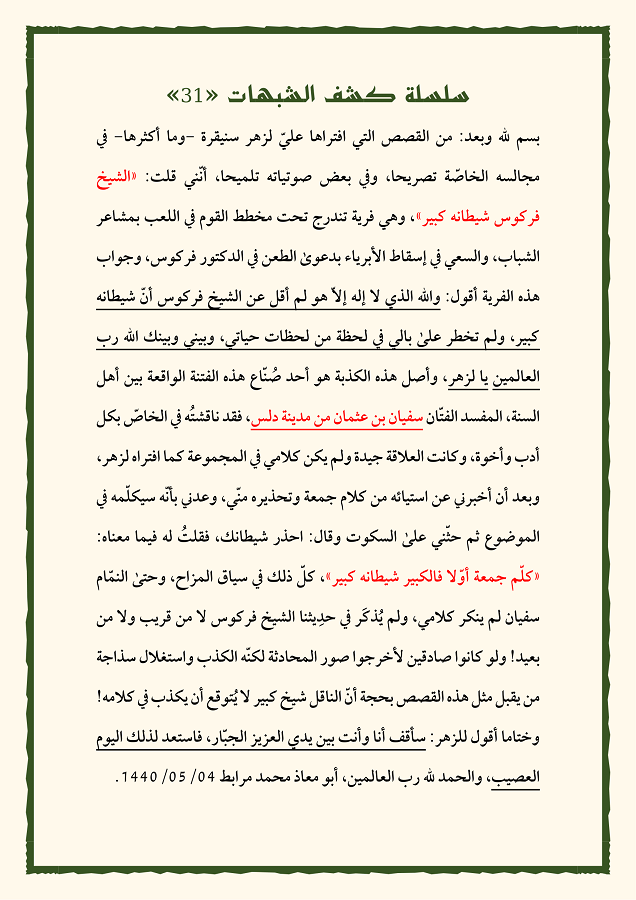 سلسلة كشف الشبهات «31»
بسم الله وبعد: من القصص التي افتراها عليّ لزهر سنيقرة -وما أكثرها- في
مجالسه الخاصّة تصريحا، وفي بعض صوتياته تلميحا، أنّني قلت: «الشيخ
فركوس شيطانه كبير»، وهي فرية تندرج تحت مخطط القوم في اللعب بمشاعر
الشباب، والسعي في إسقاط الأبرياء بدعوىٰ الطعن في الدكتور فركوس، وجواب
هذه الفرية أقول: والله الذي لا إله إلاّ هو لم أقل عن الشيخ فركوس أنّ شيطانه
كبير، ولم تخطر علىٰ بالي في لحظة من لحظات حياتي، وبيني وبينك الله رب
العالمين يا لزهر، وأصل هذه الكذبة هو أحد صُنّاع هذه الفتنة الواقعة بين أهل
السنة، المفسد الفتّان سفيان بن عثمان من مدينة دلس، فقد ناقشتُه في الخاصّ بكل
أدب وأخوة، وكانت العلاقة جيدة ولم يكن كلامي في المجموعة كما افتراه لزهر،
وبعد أن أخبرني عن استيائه من كلام جمعة وتحذيره منّي، وعدني بأنّه سيكلّمه في
الموضوع ثم حثّني علىٰ السكوت وقال: احذر شيطانك، فقلتُ له فيما معناه:
«كلّم جمعة أوّلا فالكبير شيطانه كبير»، كلّ ذلك في سياق المزاح، وحتىٰ النمّام
سفيان لم ينكر كلامي، ولم يُذكَر في حديثنا الشيخ فركوس لا من قريب ولا من
بعيد! ولو كانوا صادقين لأخرجوا صور المحادثة لكنّه الكذب واستغلال سذاجة
من يقبل مثل هذه القصص بحجة أنّ الناقل شيخ كبير لا يُتوقع أن يكذب في كلامه!
وختاما أقول للزهر: سأقف أنا وأنت بين يدي العزيز الجبّار، فاستعد لذلك اليوم
العصيب، والحمد لله رب العالمين، أبو معاذ محمد مرابط 04/ 05/ 1440.